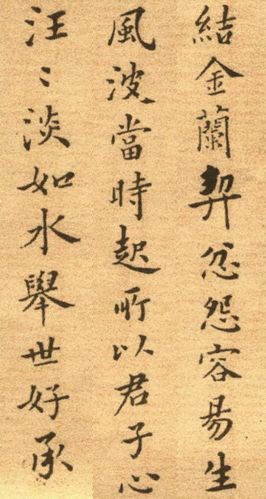 結金蘭契忿怨容易生
風波當時起所以君子心
汪〻淡如水舉世好承